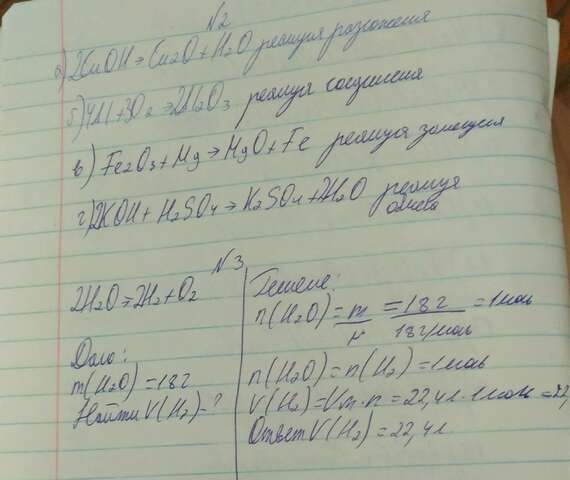 N2
а) 2CuOH→Cu2O+H2O реакция разложения
б) 4Al+3O2→2Al2O3 реакция соединения
в) Fe2O3+Mg→MgO+Fe реакция замещения
г) 2KOH+H2SO4→K2SO4+2H2O реакция
обмена
N3
2H2O→2H2+O2
Дано:
m(H2O)=18г
Найти V(H2)-?
Решение:
n(H2O)=m/μ=18г/18г/моль=1моль
n(H2O)=n(H2)=1моль
V(H2)=Vm·n=22,4л·1моль=22,
Ответ V(H2)=22,4л.